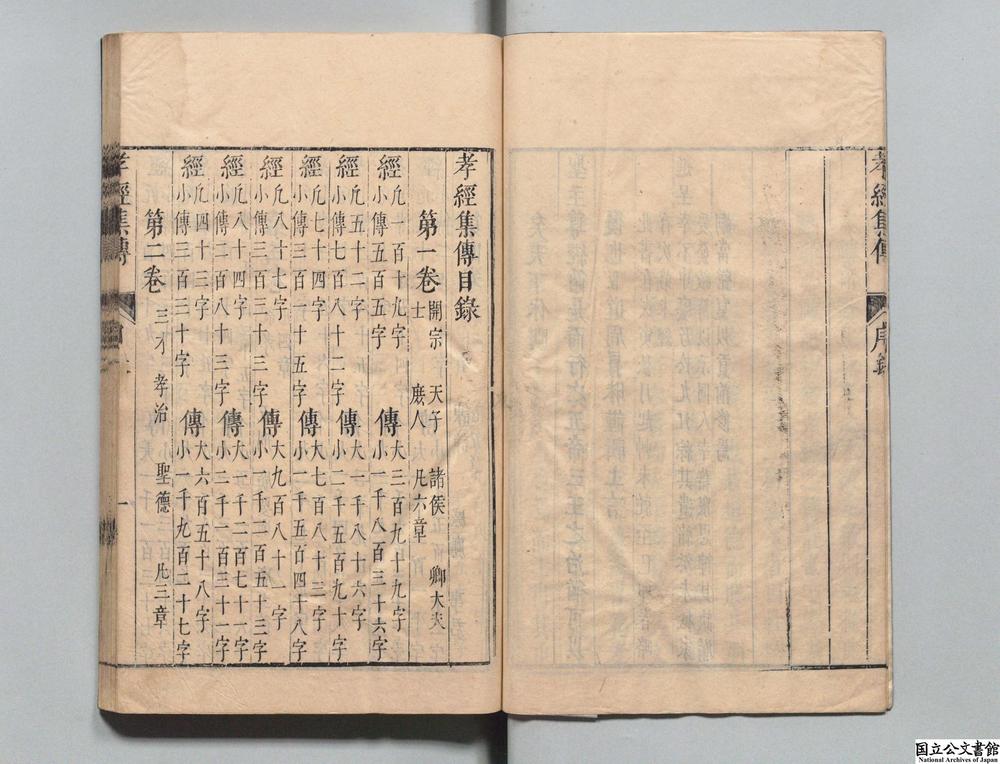 孝經集傳
序錄
孝經集傳目錄
第一卷 開宗 天子 諸侯 卿大夫
士 庶人 凡六章
經 凡一百十九字 傳 大三百九十九字
小傳五百五字 小一千八百三十六字
經 凡五十二字 傳 大一千八十六字
小傳七百八十二字 小二千五百九十字
經 凡七十四字 傳 大七百八十三字
小傳三百一十五字 小一千五百四十八字
經 凡八十七字 傳 大九百八十一字
小傳三百三十三字 小一千二百五十三字
經 凡八十四字 傳 大一千二百七十一字
小傳二百八十三字 小二千一百三十一字
經 凡四十三字 傳 大六百五十八字
小傳三百三十字 小一千九百二十七字
第二卷 三才 孝治 聖德 凡三章
孝經集傳
一
国立公文書館
National Archives of Japan